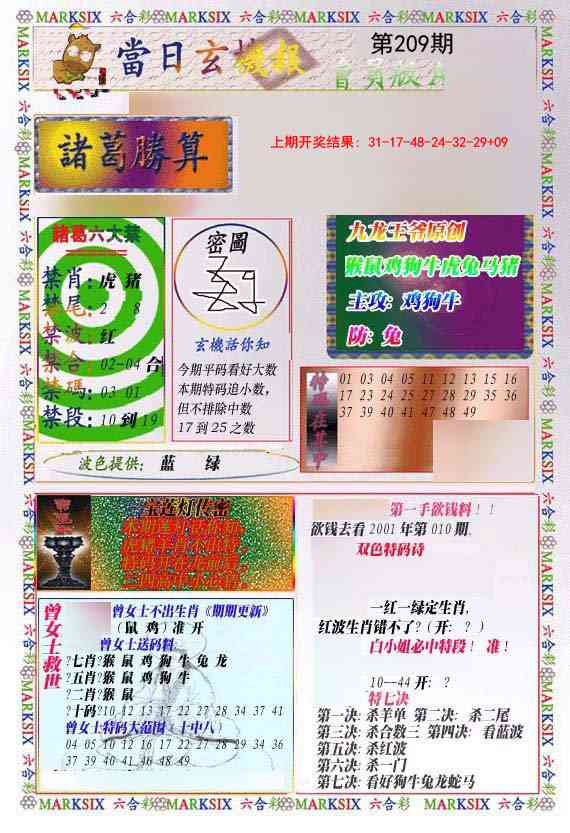 MARKSIX 六合彩
第209期
當日玄機報
會員版A
諸葛勝算
上期开奖结果：31-17-48-24-32-29+09
諸葛六大禁
禁肖：虎 猪
禁尾：2 8
禁波：红
禁合：02-04 合
禁碼：03 01
禁段：10 到 19
密圖
玄機話你知
今期平码看好大数
本期特码追小数，
但不排除中数
17 到 25 之数
九龙王爷原创
猴鼠鸡狗牛虎兔马猪
主攻: 鸡狗牛
防: 兔
特码在其中
01 03 04 05 11 12 13 15 16
17 23 24 25 27 28 29 35 36
37 39 40 41 47 48 49
波色提供： 蓝 绿
宝莲灯传密
第一手欲钱料！！
欲钱去看 2001 年第 010 期。
双色特码诗
一红一绿定生肖，
红波生肖错不了?（开：？）
白小姐必中特段！ 准！
10--44 开：？
特七决
第一决: 杀羊单 第二决: 杀二尾
第三决: 杀合数三 第四决: 看蓝波
第五决: 杀红波
第六决: 杀一门
第七决: 看好狗牛兔龙蛇马
曾女士救世
曾女士不出生肖《期期更新》
（鼠 鸡）准 开
曾女士送码料
?七肖?猴 鼠 鸡 狗 牛 兔 龙
?五肖?猴 鼠 鸡 狗 牛
?二肖?猴 鼠
?十码?10 12 13 17 22 27 28 34 37 41
曾女士特码大范围（十中八）
04 05 10 12 16 17 22 27 28 29 34 36
37 39 40 41 46 48 49
MARKSIX 六合彩